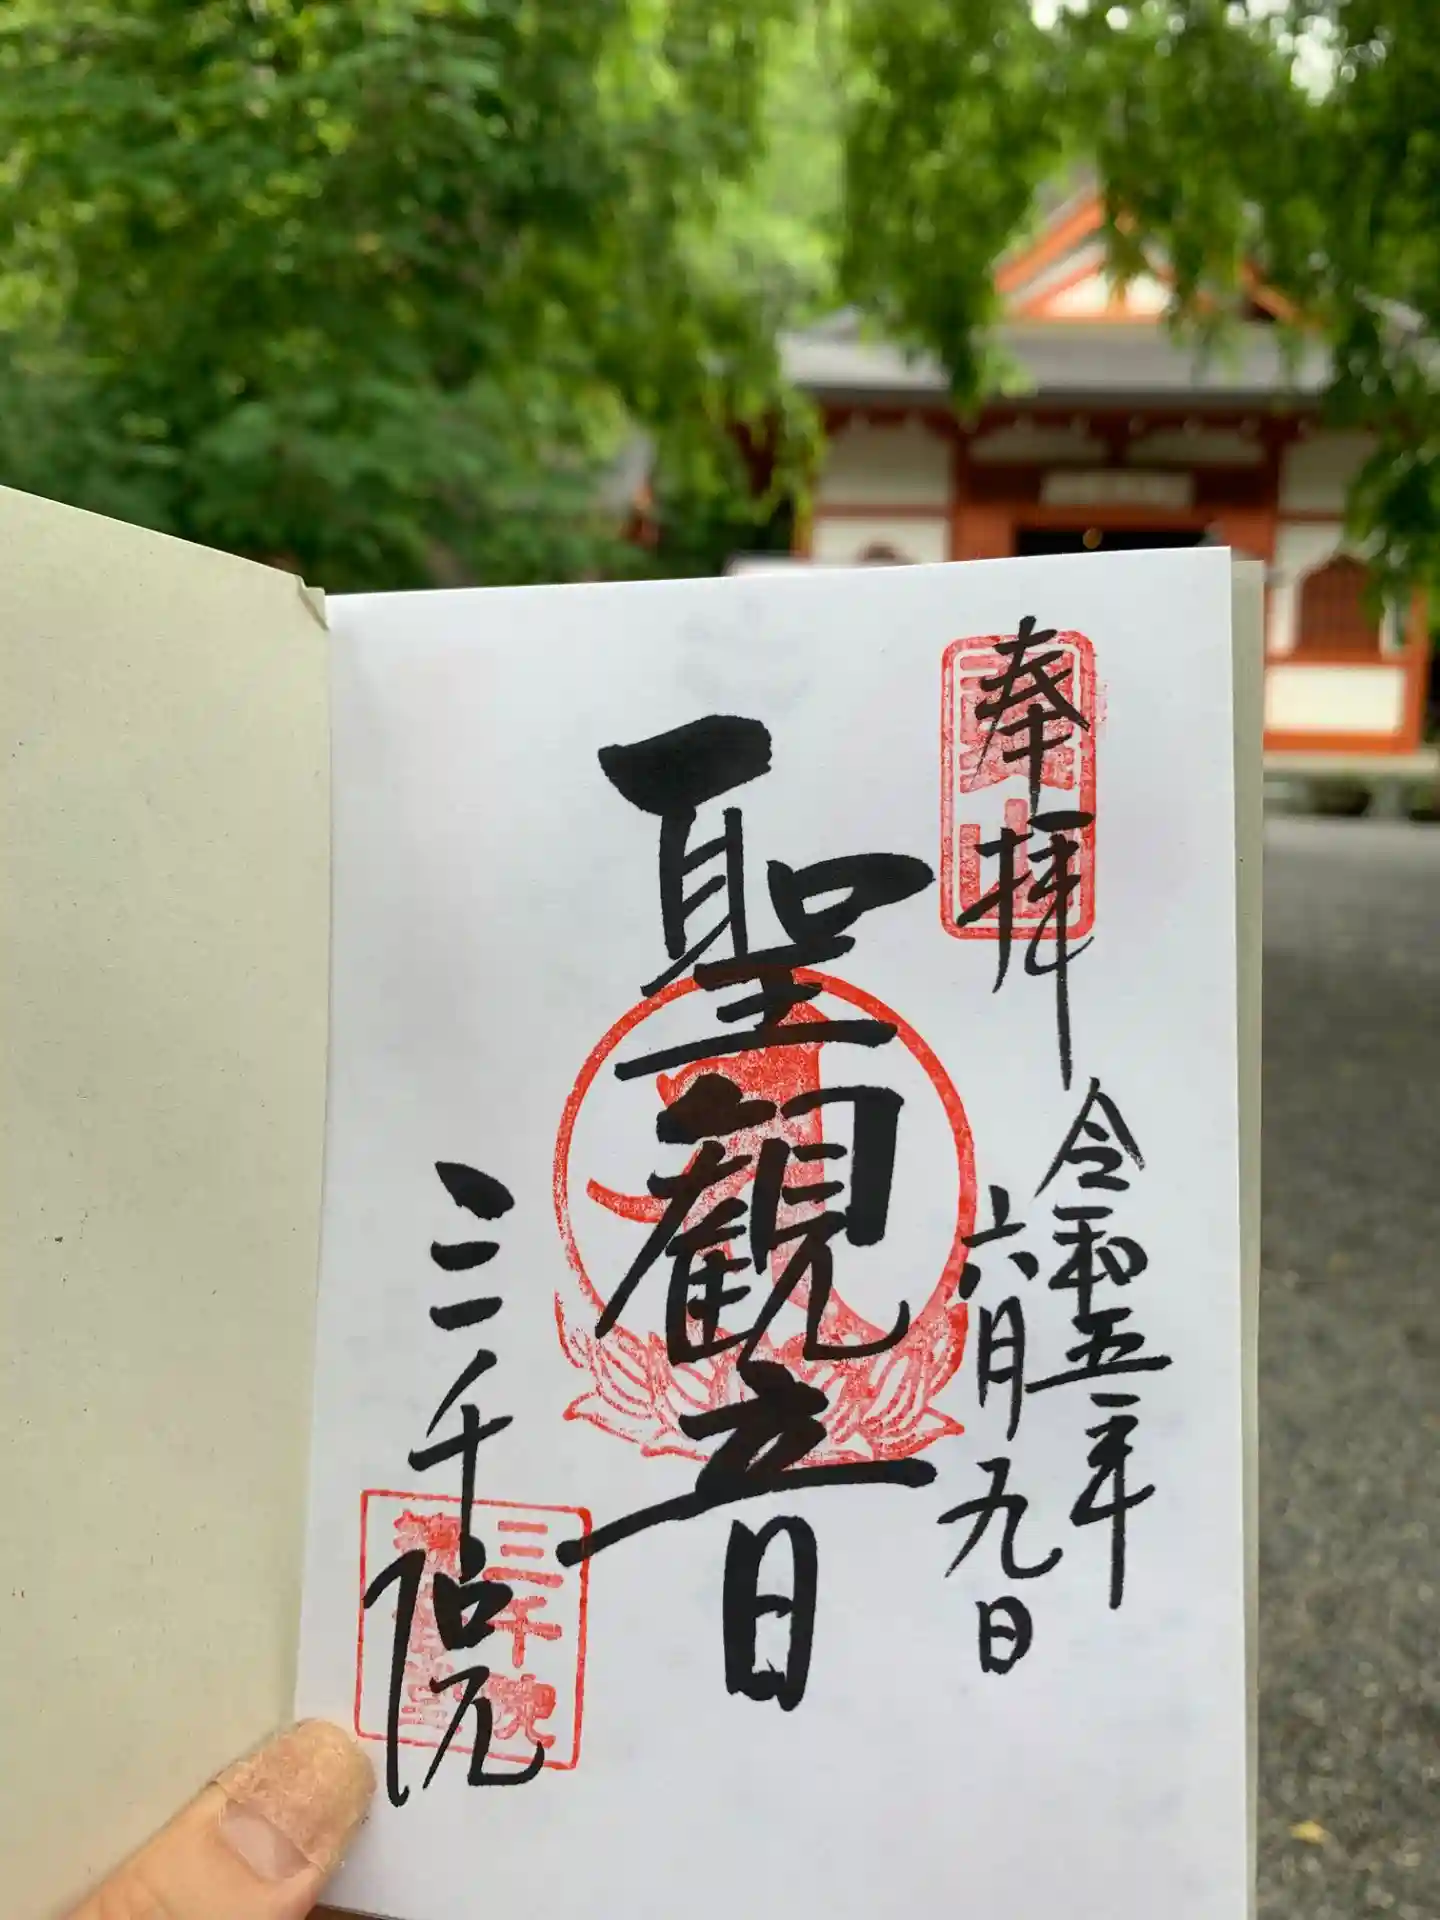 奉拝
令和五年
六月九日
聖観音
三千院
三千院